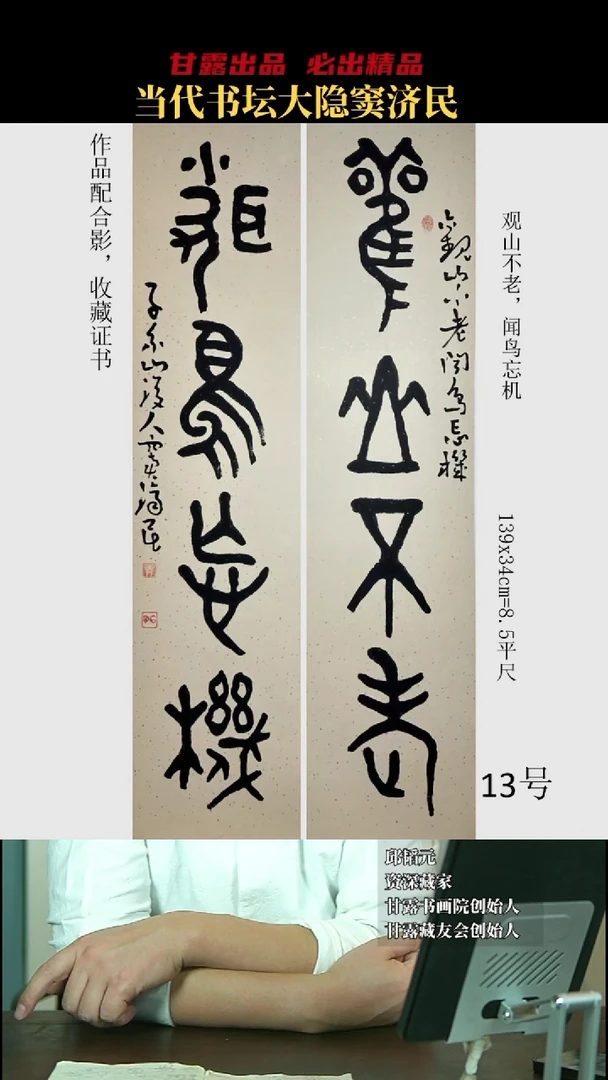 甘露出品 必出精品
当代书坛大隐窦济民
作品配合影，收藏证书
觀山不老
觀山不老闻鸟忘機
聞鳥忘機
窦濟民
观山不老，闻鸟忘机
139x34cm=8.5平尺
13号
邱韬元
资深藏家
甘露书画院创始人
甘露藏友会创始人